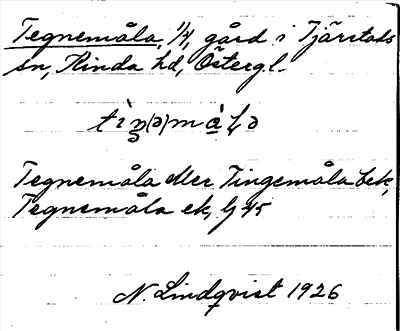 Tegnemåla, 1/4, gård i Tjärstads
sn, Kinda hd, Östergl.
tìŋ(ə)màɬə
Tegnemåla eller Tingemåla bek,
Tegnemåla ek, lj 45
N. Lindqvist 1926